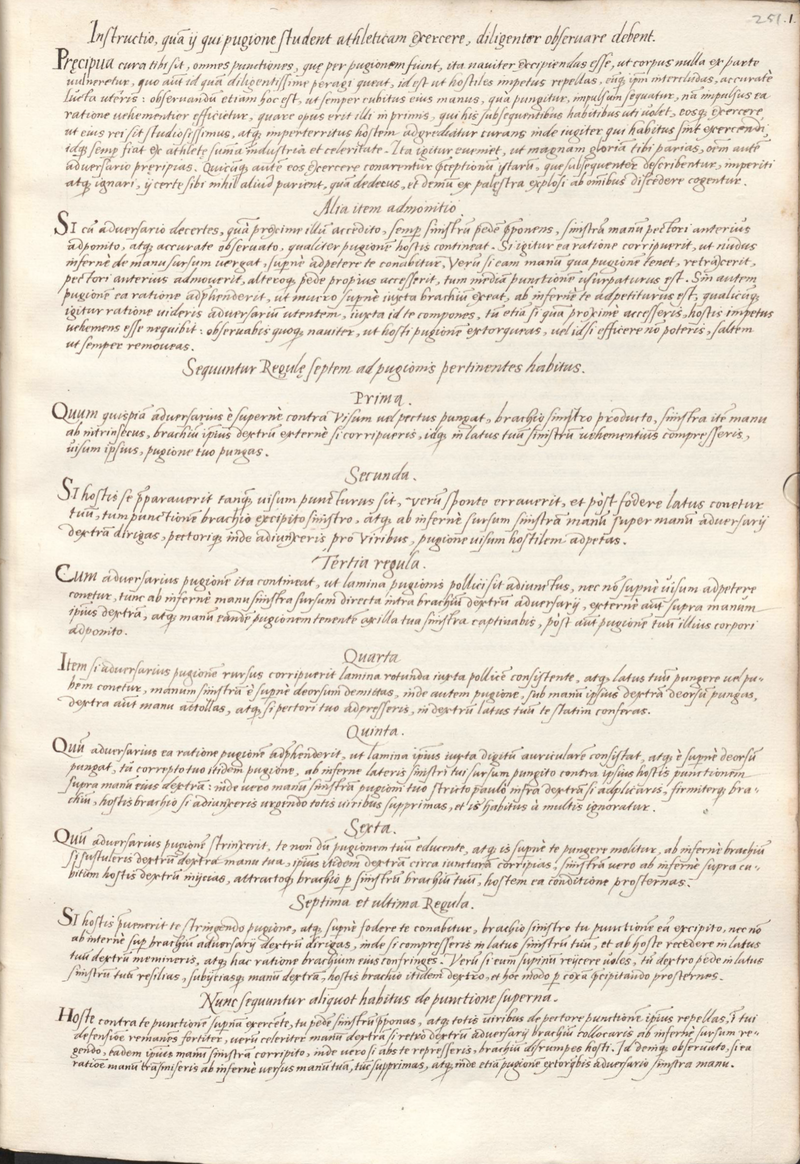 251.1.
Instructio, quã ÿ qui pugione student athleticam exercere, diligenter observare debent.
Pręcipua cura tibi sit, omnes punctiones, quę per pugionem fiunt, ita naviter excipiendas esse, ut corpus nulla ex parte
vulneretur, quo aũt id quã diligentissime peragi queat, id est ut hostiles impetus repellas, eũq; ipm intercludas, accurate
lucta uteris: observandũ etiam hoc est, ut semper cubitus eius manus, qua pungitur, impulsum sequatur, nã impulsus ea
ratione vehementior efficietur, quare opus erit illi in primis, qui his subsequentibus habitibus uti volet, eosq; exercere
ut eius rei sit studiosissimus, atq; imperterritus hostem adgrediatur curans inde iugiter qui habitus sint exercendi,
idq; semp fiat ex athletę sũma industria et celeritate. Ita igitur eveniet, ut magnam gloriã tibi parias, oẽm autẽ
adversario pręripias. Quicũq; autẽ eos exercere conarentur p̱ceptionũ istarũ, quę subsequenter describentur, imperiti
atq; ignari, ÿ certe sibi nihil aliud parient, quã dedecus, et demũ ex palestra explosi ab omĩbus discedere cogentur.
Alia item admonitio
Si cũ adversario decertes, quã proxime illũ accedito, semp sinistrũ pedẽ p̱ponens, sinistrã manũ pectori anterius
adponito, atq; accurate observato, qualiter pugionẽ hostis contineat. Si igitur ea ratione corripuerit, ut nudus
infernè de manu sursum vergat, supnè adpetere te conabitur. Verũ si eam manũ qua pugionẽ tenet, retraxerit,
pectori anterius admoverit, alteroq; pede propius accesserit, tum mediã punctione usurpaturus est. Sin autem
pugionẽ ea ratione adphenderit, ut mucro supnè iuxta brachiũ exeat, ab infernè te adpetiturus est, qualicũq;
igitur ratione videris adversariũ utentem, iuxta id te compones, tũ etiã si quã proximè accesseris, hostis impetus
vehemens esse nequibit: observabis quoq; naviter, ut hosti pugionẽ extorqueas, vel id si efficere nõ poteris, saltem
ut semper removeas.
Sequuntur Regulę septem ad pugionis pertinentes habitus.
Prima.
Quum quispiã adversarius è supernè contra Visum vel pectus pungat, brachio sinistro producto, sinistra itẽ manu
ab intrinsecus, brachiũ ipsius dextrũ externè si corripueris, idq; in latus tuũ sinistrũ vehementius compresseris,
visum ipsius, pugione tuo pungas.
Secunda.
Si hostis se p̱paraverit tanq; visum puncturus sit, verũ sponte erraverit, et pòst fodere latus conetur
tuũ, tum punctionẽ brachio excipito sinistro, atq; ab infernè sursum sinistrã manũ super manũ adversarÿ
dextrã dirigas, pectoriq; inde adiunxeris pro viribus, pugione visum hostilem adpetas.
Tertia regula.
Cum adversarius pugionẽ ita contineat, ut lamina pugionis pollici sit adiunctus, nec nõ supnè visum adpetere
conetur, tunc ab infernè manu sinistra sursum directa intra brachiũ dextrũ adversarÿ, externè aũt supra manum
ipsius dextrã, atq; manũ eandẽ pugionem tenentẽ axilla tua sinistra captivabis, pòst aũt pugionẽ tuũ illius corpori
adponito.
Quarta
Item si adversarius pugionẽ rursus corripuerit lamina rotunda iuxta pollicẽ consistente, atq; latus tuũ pungere vel pu-
bem conetur, manum sinistrũ è supnè deorsum demittas, inde autem pugione, sub manũ ipsius dextrã deorsũ pungas,
dextrã aũt manu attollas, atq; si pectori tuo adpresseris, in dextrũ latus tuũ te statim conferas.
Quinta.
Quũ adversarius ea ratione pugionẽ adphenderit, ut lamina ipsius iuxta digitũ auricularẽ consistat, atq; è supnè deorsũ
pungat, tũ correpto tuo itidem pugione, ab infernè lateris sinistri tui sursum pungito contra ipsius hostis punctionem
supra manũ eius dextrã: inde vero manũ sinistrã pugioni tuo stricto paulo infra dextrã si adplicaris, firmiterq; bra-
chiũ, hostis brachio si adiunxeris urgendo totis viribus supprimas, et is habitus à multis ignoratur.
Sexta.
Quũ adversarius pugionẽ strinxerit, te non dũ pugionem tuũ educente, atq; is supnè te pungere molitur, ab infernè brachiũ
si sustuleris dextrũ dextra manu tua, ipsius itidem dextrã circa iuncturã corripias: sinistrũ vero ab infernè supra cu-
bitum hostis dextrũ inÿcias, attractoq; brachio p sinistrũ brachiũ tuũ, hostem ea conditione prosternas.
Septima et ultima Regula.
Si hostis p̱venerit te stringendo pugionẽ, atq; supnè fodere te conabitur, brachio sinistro tu punctionẽ eã excipito, nec nõ
ab internè sup brachiũ adversarÿ dextrũ dirigas, inde si compresseris in latus sinistrũ tuũ, et ab hoste recedere in latus
tuũ dextrũ memineris, atq; hac ratione brachium eius confringes. Verũ si eum supinũ reÿcere voles, tũ dextro pede in latus
sinistrũ tuũ resilias, subÿciasq; manũ dextrã, hostis brachio itidem dextro, et hoc modo p coxã p̱cipitando prosternes.
Nunc sequuntur aliquot habitus de punctione superna.
Hoste contra te punctionẽ supnã exercẽte, tu pedẽ sinistrũ p̱ponas, atq; totis viribus de pectore punctionẽ ipsius repellas, ĩ tui
defensiõe remanẽs fortiter, verũ celeriter manũ dextrã si retrò dextrũ adversarÿ brachiũ collocaris ab infernè sursum re-
gendo, eadem ipsius manũ sinistrã corripito, inde vero si abs te represseris, brachiũ disrumpes hosti. Id deniq; observato, si ea
ratiõe manũ trãsmiseris ab infernè versus manũ tuã, tũc supprimas, atq; inde etiã pugionẽ extorq̃bis adversario sinistra manu.